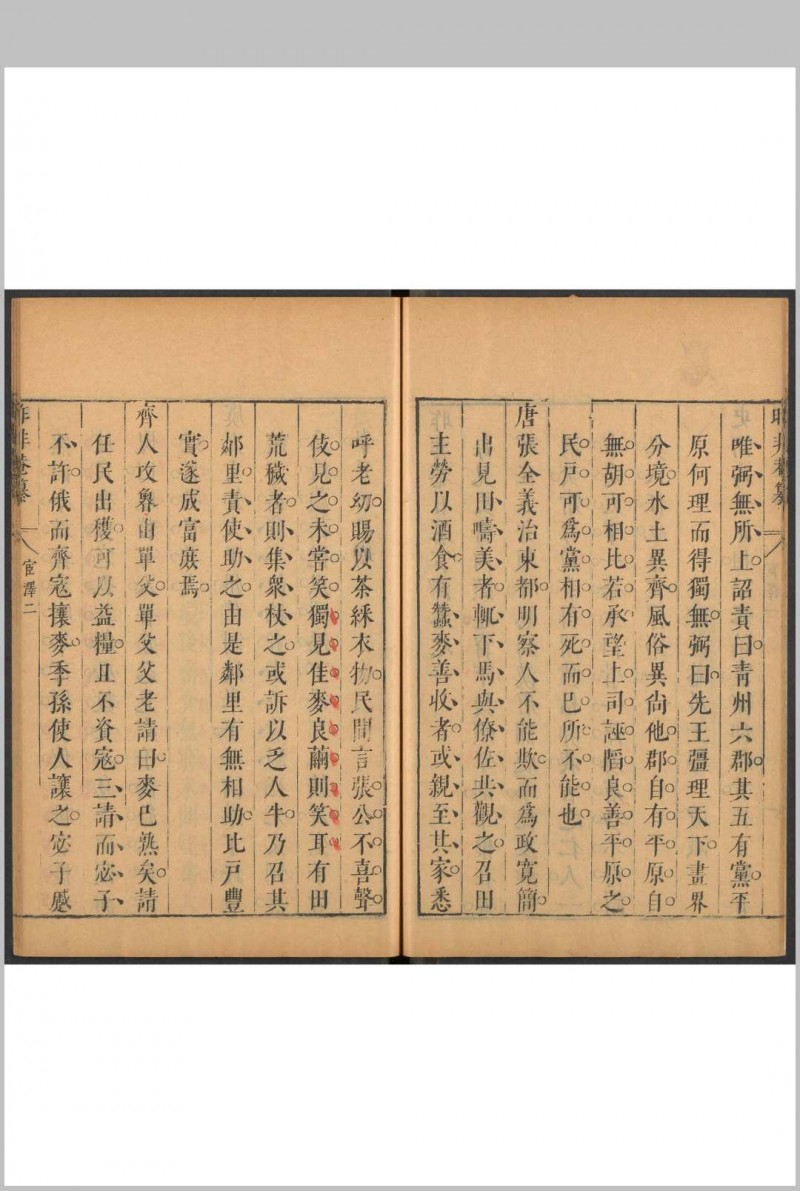 昨非菴纂
唯弼無所上詔責曰青州六郡其五有黨平
原何理而得獨無弼曰先王彊理天下畫界
分境水土異齊風俗異尚他郡自有平原自
無胡可相比若承望上司誣陷良善平原之
民戶可為黨相有死而已所不能也
唐張全義治東都明察人不能欺而為政寬簡
出見田疇美者輒下馬與僚佐共觀之召田
主勞以酒食有蠶麥善收者或親至其家悉
呼老幼賜以茶綵衣物民間言張公不喜聲
伎見之未嘗笑獨見佳麥良繭則笑耳有田
荒穢者則集衆杖之或訴以乏人牛乃召其
鄰里責使助之由是鄰里有無相助比戶豐
實遂成富庶焉
齊人攻魯由單父單父父老請曰麥已熟矣請
任民出穫可以益糧且不資寇三請而宓子
不許俄而齊寇攘麥季孫使人讓之宓子蹙
昨非菴纂
宦澤二